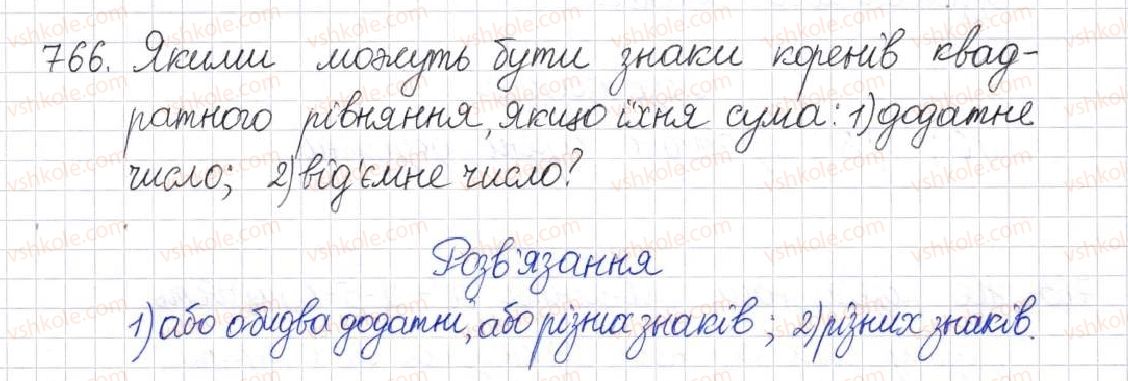 766. Якими можуть бути знаки коренів квад-
ратного рівняння, якщо їхня сума: 1) додатне
число; 2) від'ємне число?
Розв'язання
1) або обидва додатні, або різних знаків; 2) різних знаків.